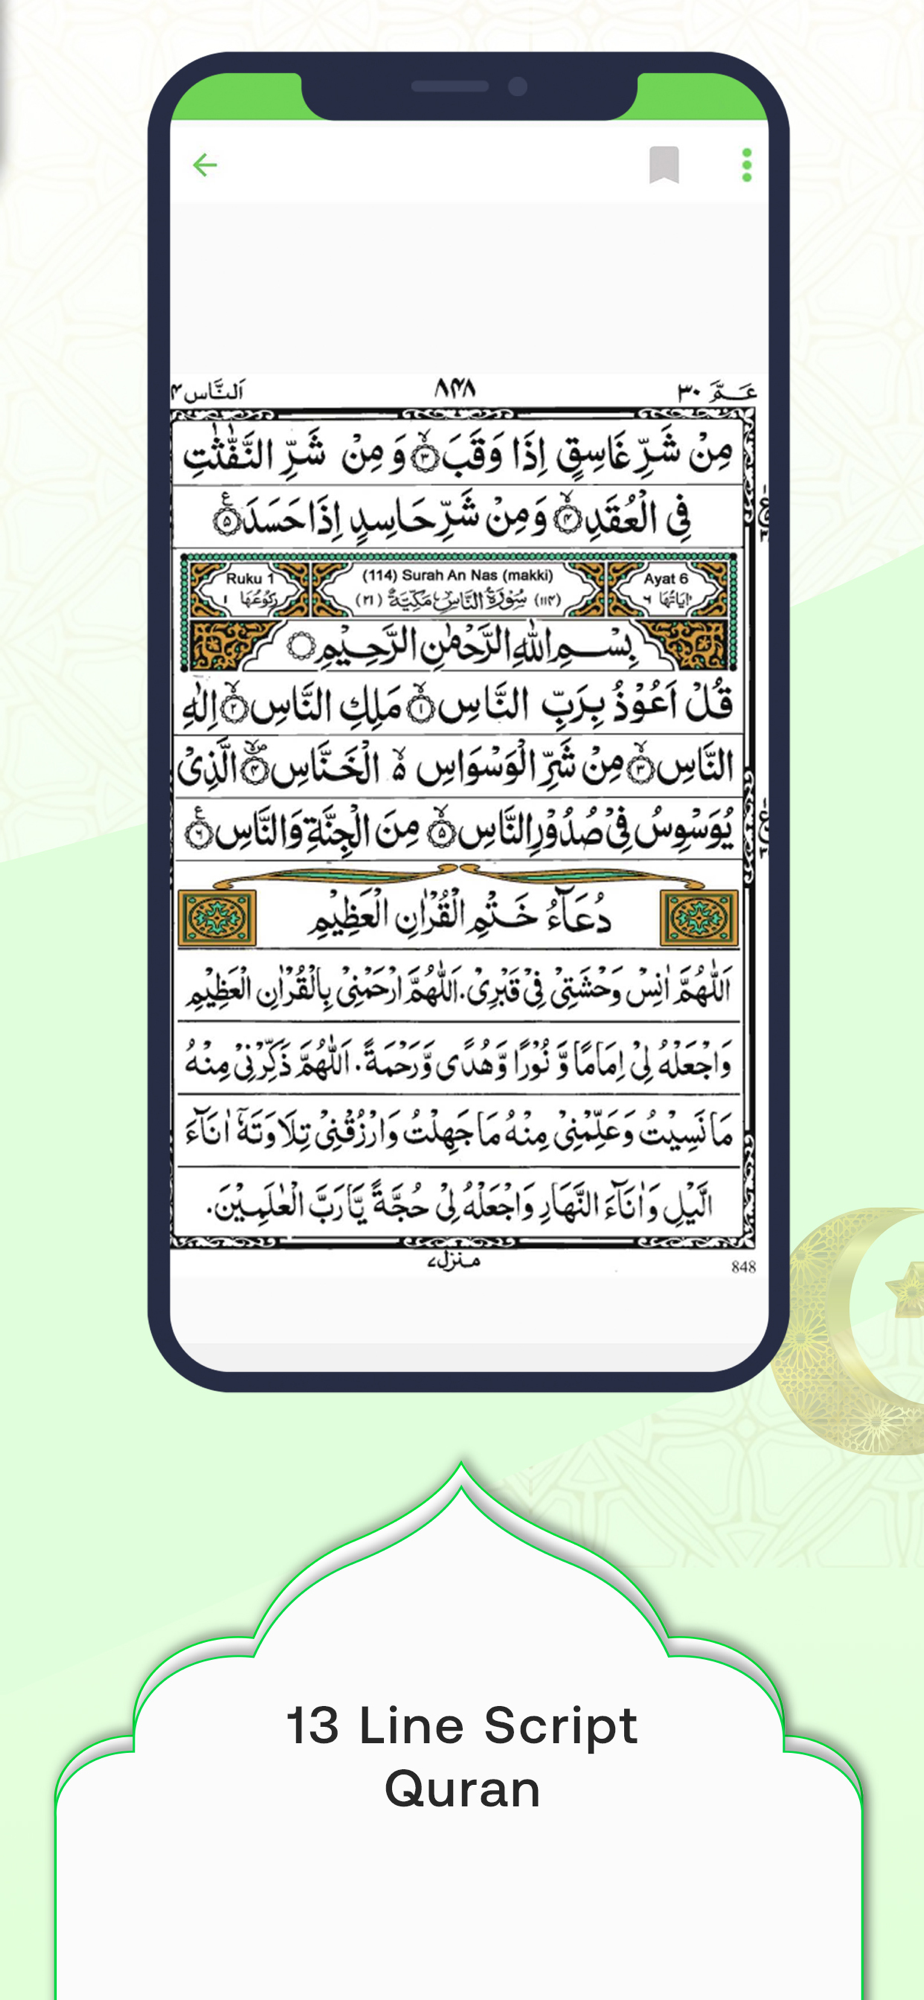 عَـمَّ ٣٠
٨٤٨
اَلنَّاس ١١٤
مِنْ شَرِّ غَاسِقٍ اِذَا وَقَبَ ۙ۝٣ وَ مِنْ شَرِّ النَّفّٰثٰتِ
فِى الْعُقَدِ ۙ۝٤ وَمِنْ شَرِّ حَاسِدٍ اِذَا حَسَدَ ۝٥
Ruku 1
(114) Surah An Nas (makki)
Ayat 6
اٰيَاتُهَا ٦
(١١٤) سُوْرَةُ النَّاسِ مَكِّيَّةٌ (٢١)
رُكُوْعُهَا ١
بِسْمِ اللّٰهِ الرَّحْمٰنِ الرَّحِيْمِ
قُلْ اَعُوْذُ بِرَبِّ النَّاسِ ۙ۝١ مَلِكِ النَّاسِ ۙ۝٢ اِلٰهِ
النَّاسِ ۙ۝٣ مِنْ شَرِّ الْوَسْوَاسِ ۙ۬ الْخَنَّاسِ ۝٤ الَّذِىْ
يُوَسْوِسُ فِىْ صُدُوْرِ النَّاسِ ۙ۝٥ مِنَ الْجِنَّةِ وَالنَّاسِ ۝٦
دُعَآءُ خَتْمِ الْقُرْاٰنِ الْعَظِيْمِ
اَللّٰهُمَّ اٰنِسْ وَحْشَتِىْ فِىْ قَبْرِىْ. اَللّٰهُمَّ ارْحَمْنِىْ بِالْقُرْاٰنِ الْعَظِيْمِ
وَاجْعَلْهُ لِىْ اِمَامًا وَّ نُوْرًا وَّهُدًى وَّرَحْمَةً. اَللّٰهُمَّ ذَكِّرْنِىْ مِنْهُ
مَا نَسِيْتُ وَعَلِّمْنِىْ مِنْهُ مَا جَهِلْتُ وَارْزُقْنِىْ تِلَاوَتَهٗ اٰنَآءَ
الَّيْلِ وَاٰنَآءَ النَّهَارِ وَاجْعَلْهُ لِىْ حُجَّةً يَّا رَبَّ الْعٰلَمِيْنَ.
منزل ٧
848
13 Line Script
Quran